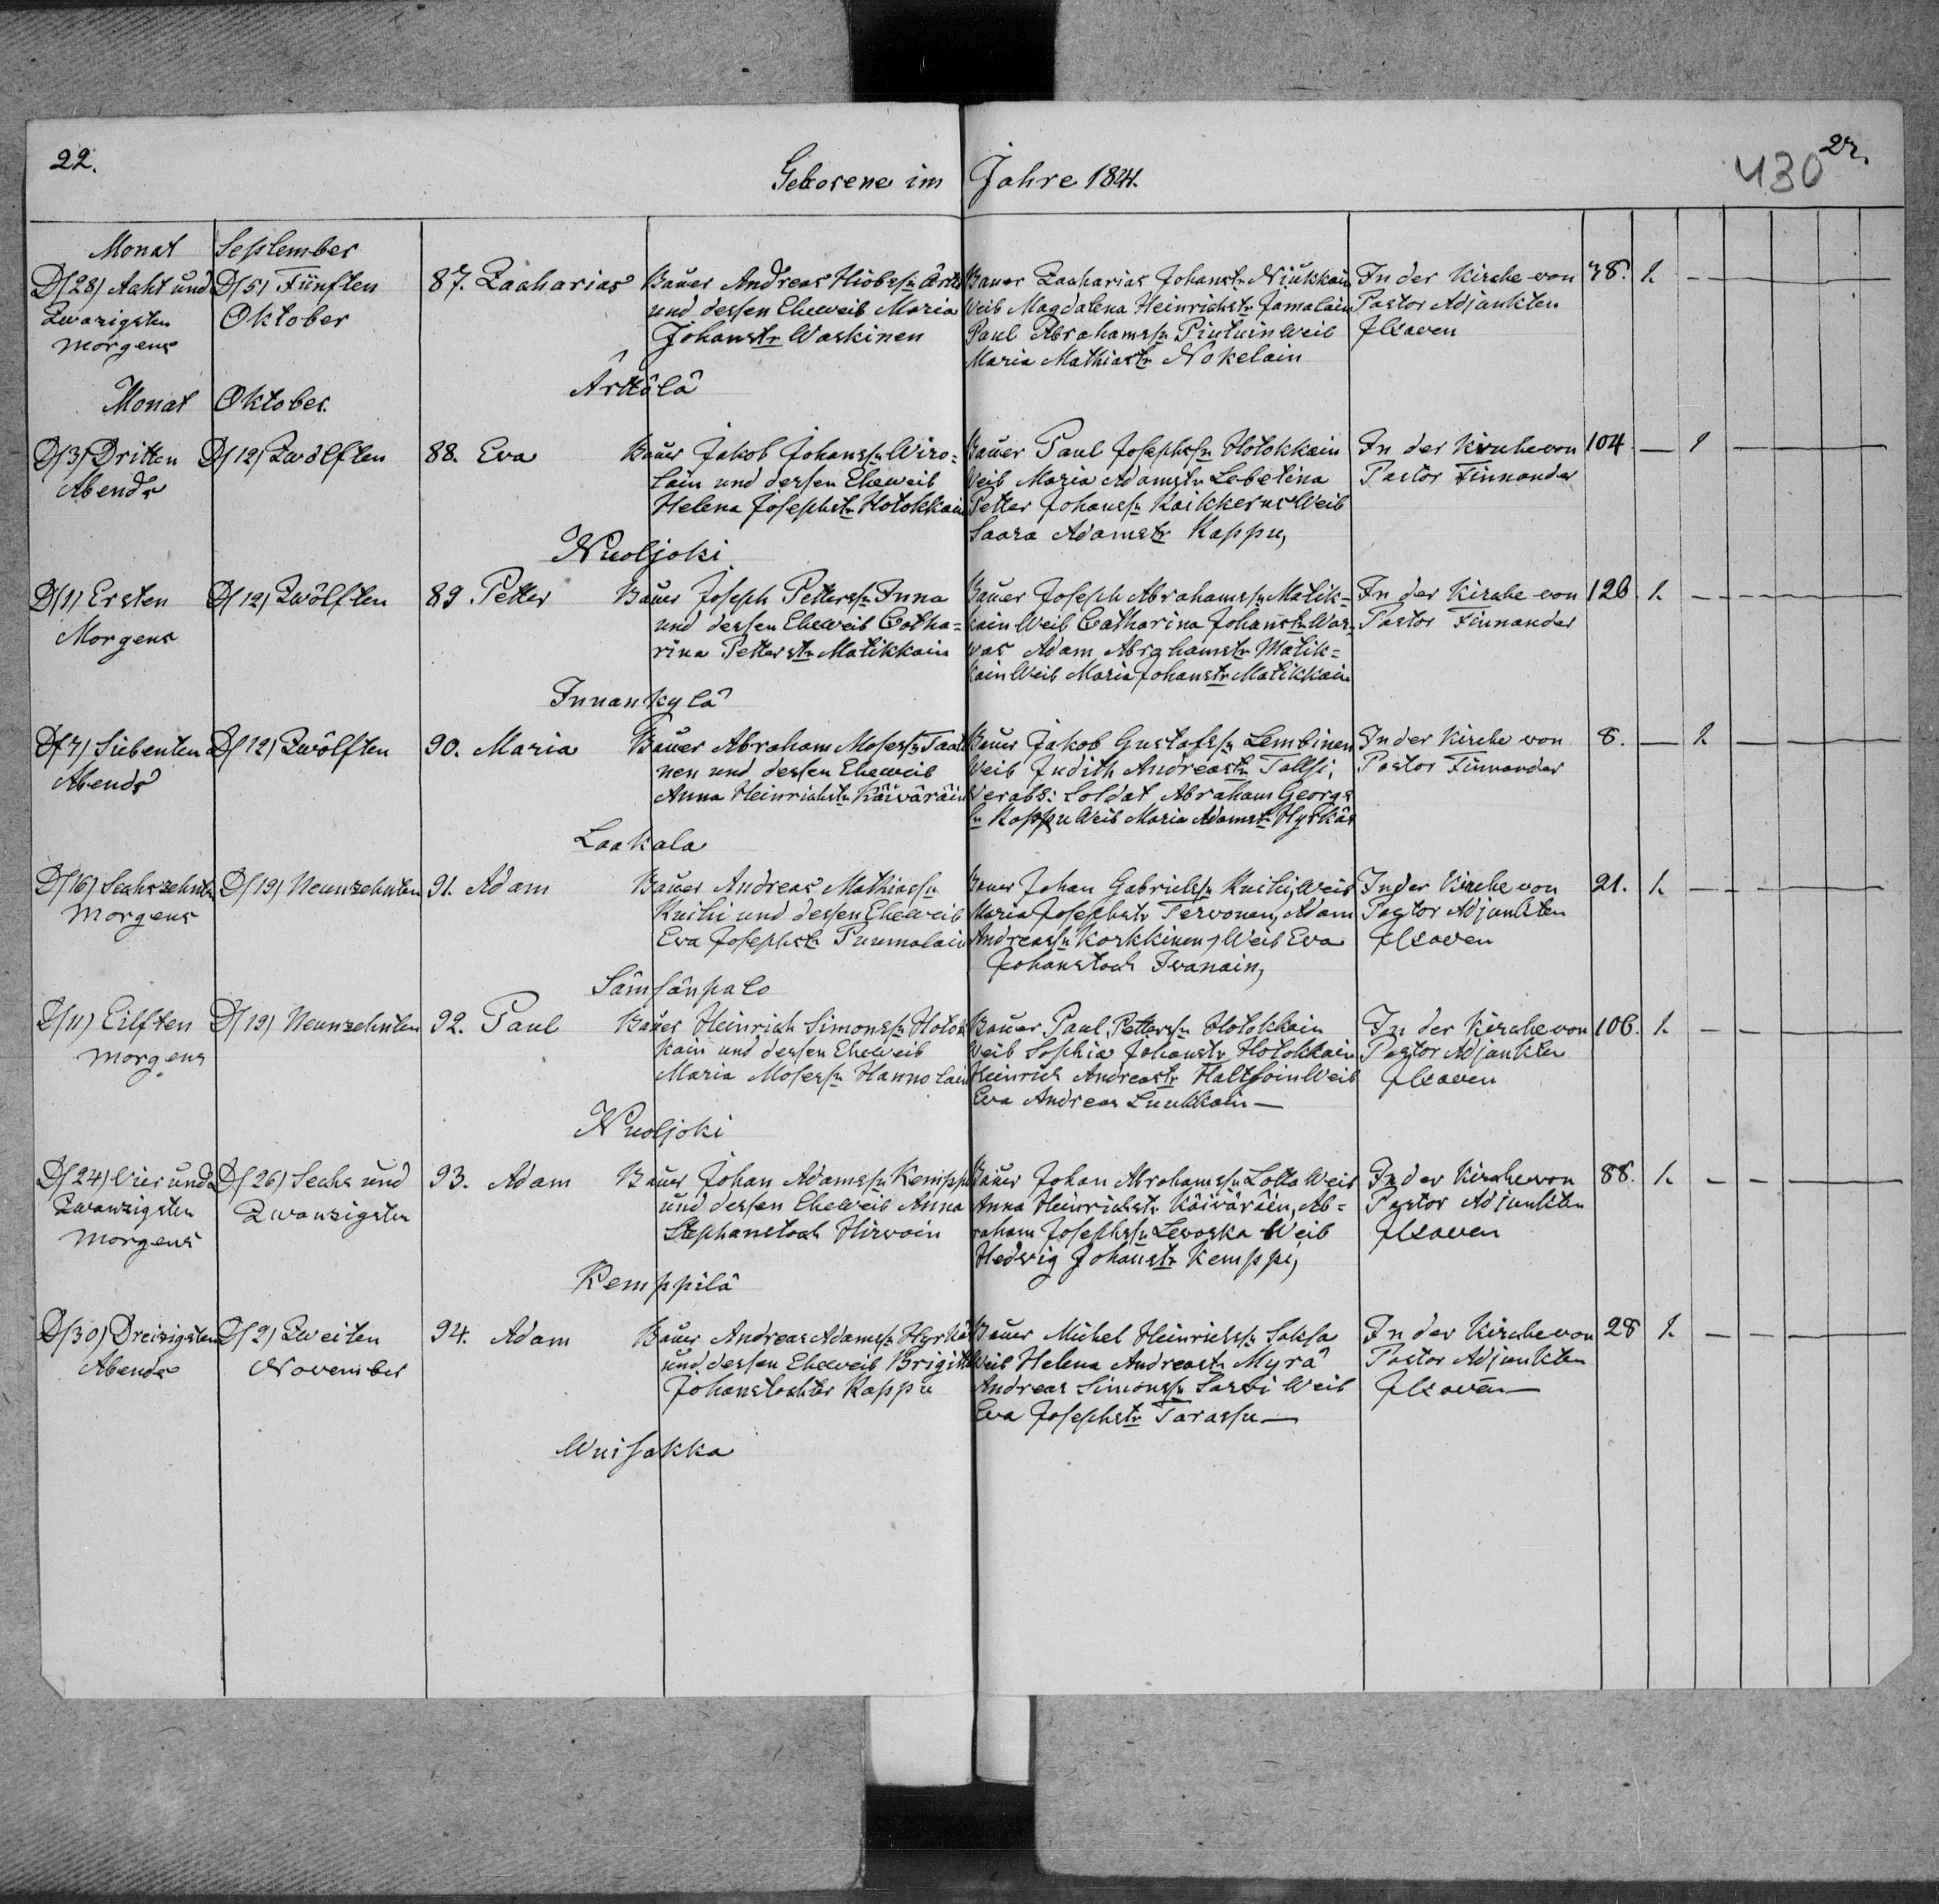 22.
Geborene im Jahre 1841.
22.
430
Monat September
D/28/ Acht und
Zwazigsten
Morgens
D/5/ Fünften
Oktober
87. Zacharias
Bauer Andreas Hiobssn Ärtt
und dessen Eheweib Maria
Johanstr Waskinen
Ärttölä
Bauer Zacharias Johanstr Niukkain
Weib Magdalena Heinrichstr Jamalain
Paul Abrahamssn Piutuin Weib
Maria Mathiastr Nokelain
In der Kirche von
Pastor Adjunkten
38. 1. —
Monat Oktober.
D/3/ Dritten
Abends
D/12/ Zwölften
88. Eva
Bauer Jakob Johanssn Wiro=
lain und dessen Eheweib
Helena Josephstr Hotokkain
Nuoljoki
Bauer Paul Josephssn Hotokkain
Weib Maria Adamstr Lebetina
Petter Johanssn Kaikkerus Weib
Saara Adamstr Kappu,
In der Kirche von
Pastor Finnander
104 — 1 —
D/1/ Ersten
Morgens
D/12/ Zwölften
89. Petter
Bauer Joseph Petterssn Inna
und dessen Eheweib Catha=
rina Petterstr Matikkain
Innankylä
Bauer Joseph Abrahamssn Matik=
kain Weib Catharina Johanstr War=
was Adam Abrahamstr Matik=
kain Weib Maria Johanstr Matikkain
In der Kirche von
Pastor Finnander
126. 1. —
D/7/ Siebenten
Abends
D/12/ Zwölften
90. Maria
Bauer Abraham Mosessn Taati
nen und dessen Eheweib
Anna Heinrichstr Käiväräin
Laakala
Bauer Jakob Gustafssn Lembinen
Weib Judith Andreastr Tallsi,
Verabs: Soldat Abraham Georgs
sn Kappu Weib Maria Adamstr Hyrkäs
In der Kirche von
Pastor Finnander
8. — 1. —
D/16/ Sechszehnten
Morgens
D/19/ Neunzehnten
91. Adam
Bauer Andreas Mathiassn
Knihi und dessen Eheweib
Eva Josephstr Puumalain
Sämsänpalo
Bauer Johan Gabrielssn Knihi, Weib
Maria Josephstr Terwonen, Adam
Andreassn Korkkinen, Weib Eva
Johanstoch Iwanain,
In der Kirche von
Pastor Adjunkten
21. 1. —
D/11/ Eilften
Morgens
D/19/ Neunzehnten
92. Paul
Bauer Heinrich Simonssn Hotok
kain und dessen Eheweib
Maria Mosessn Hannolain
Nuoljoki
Bauer Paul Petterssn Hotokkain
Weib Sophia Johanstr Hotokkain
Heinrich Andreastr Haltsoin Weib
Eva Andreas Luukkain —
In der Kirche von
Pastor Adjunkten
106. 1. —
D/24/ Vier und
Zwanzigsten
Morgens
D/26/ Sechs und
Zwanzigsten
93. Adam
Bauer Johan Adamssn Kemppi
und dessen Eheweib Anna
Stephanstoch Hirvoin
Kemppilä
Bauer Johan Abrahamssn Lotta Weib
Anna Heinrichstr Käiväräin, Ab=
raham Josephssn Lewoska Weib
Hedvig Johanstr Kemppi,
In der Kirche von
Pastor Adjunkten
88. 1. —
D/30/ Dreizigsten
Abends
D/2/ Zweiten
November
94. Adam
Bauer Andreas Adamssn Hyrkäs
und dessen Eheweib Brigitta
Johanstochter Kappu
Wuisakka
Bauer Michel Heinrichssn Saksa
Weib Helena Andreastr Myrä
Andreas Simonssn Sassi Weib
Eva Josephstr Tarassu —
In der Kirche von
Pastor Adjunkten
28 1. —